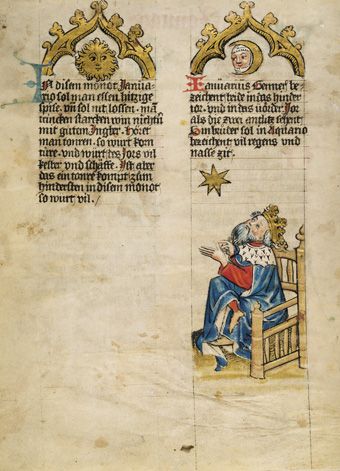 In disem monot Janua
rio sol man essen hitzige
spise. vn sol nit lossen. man
trincken starcken win nuchtn
mit gutem Ingber. Horet
man tonren. so wurt korn
ture. vnd wurt des Jors vil
kester vnd schaffe. Ist aber
das ein tonre kompt zum
hindersten in disem monot
so wurt vil.
Januarius Genner be
zeichent beide in das hinder
ior. vnd in das vorder Jor
als die zwei antlitz sehent
Sin bruder sol in aquario
bezeichent vil regens vnd
nasse zit.